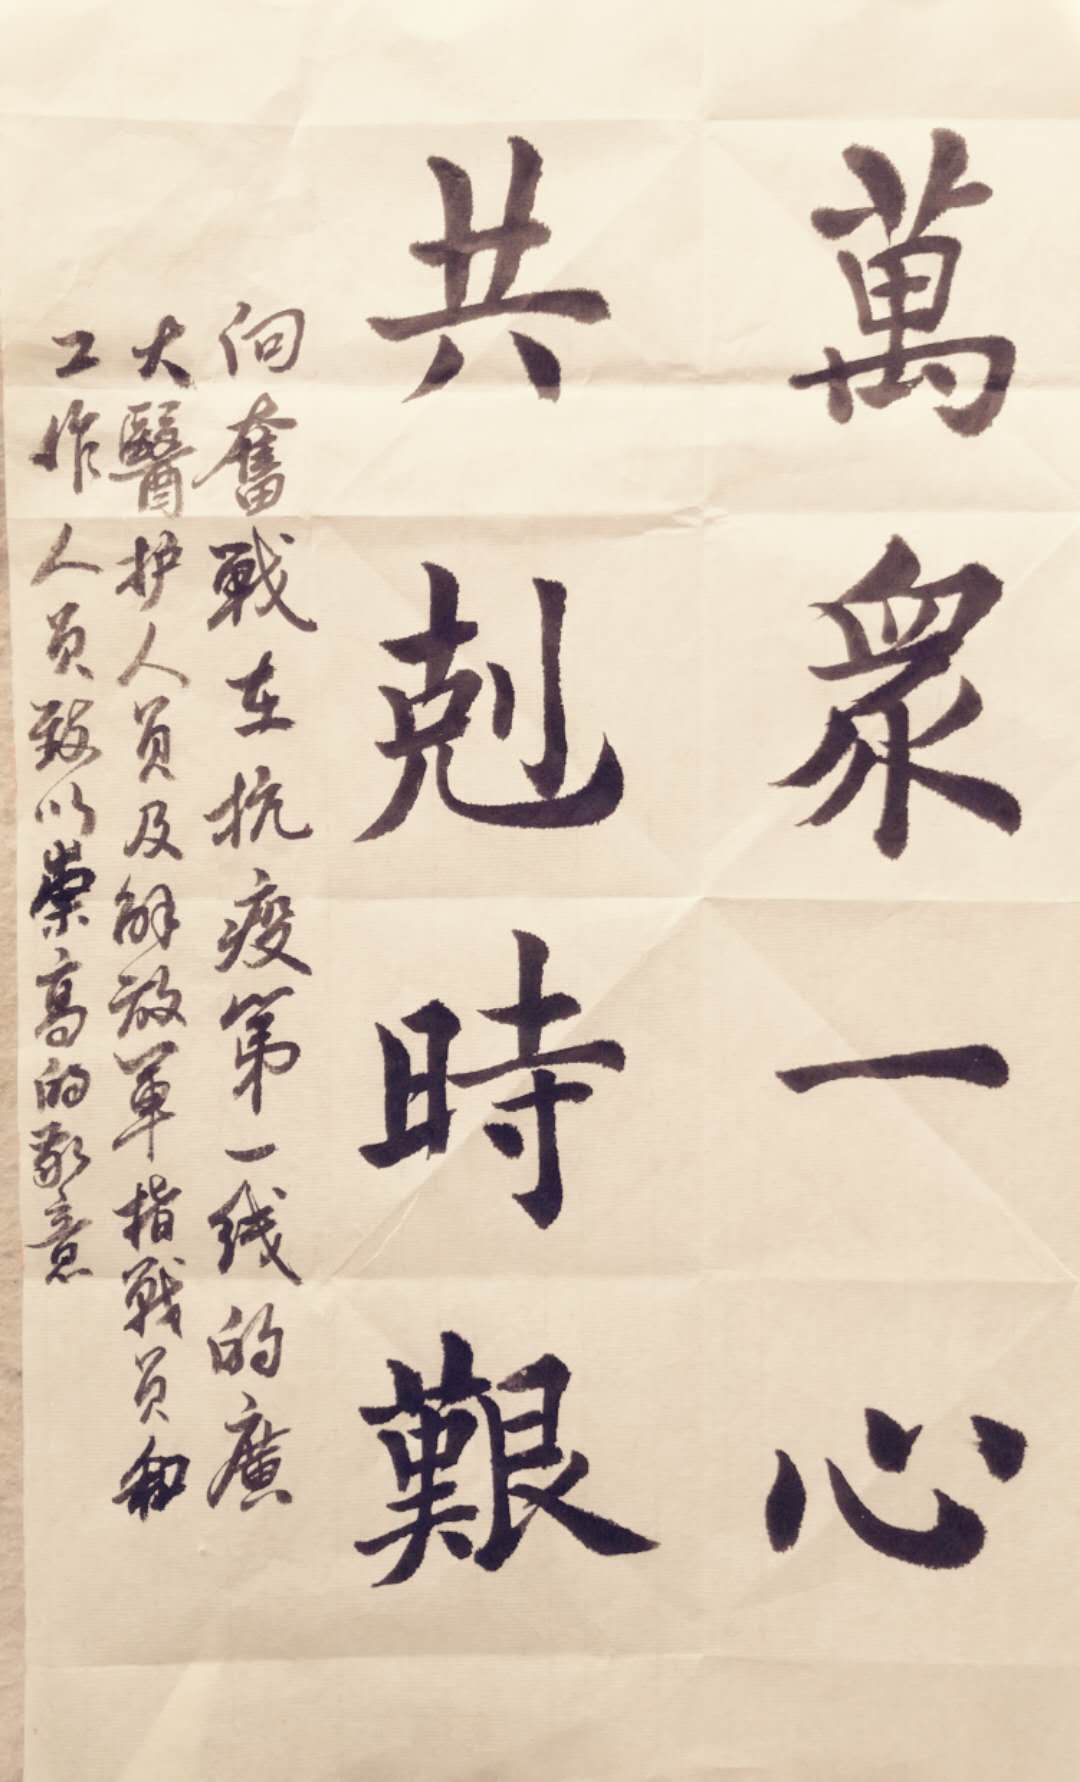 萬眾一心
共剋時艱
向奮戰在抗疫第一线的廣
大醫护人员及解放军指戰员和
工作人员致以崇高的敬意